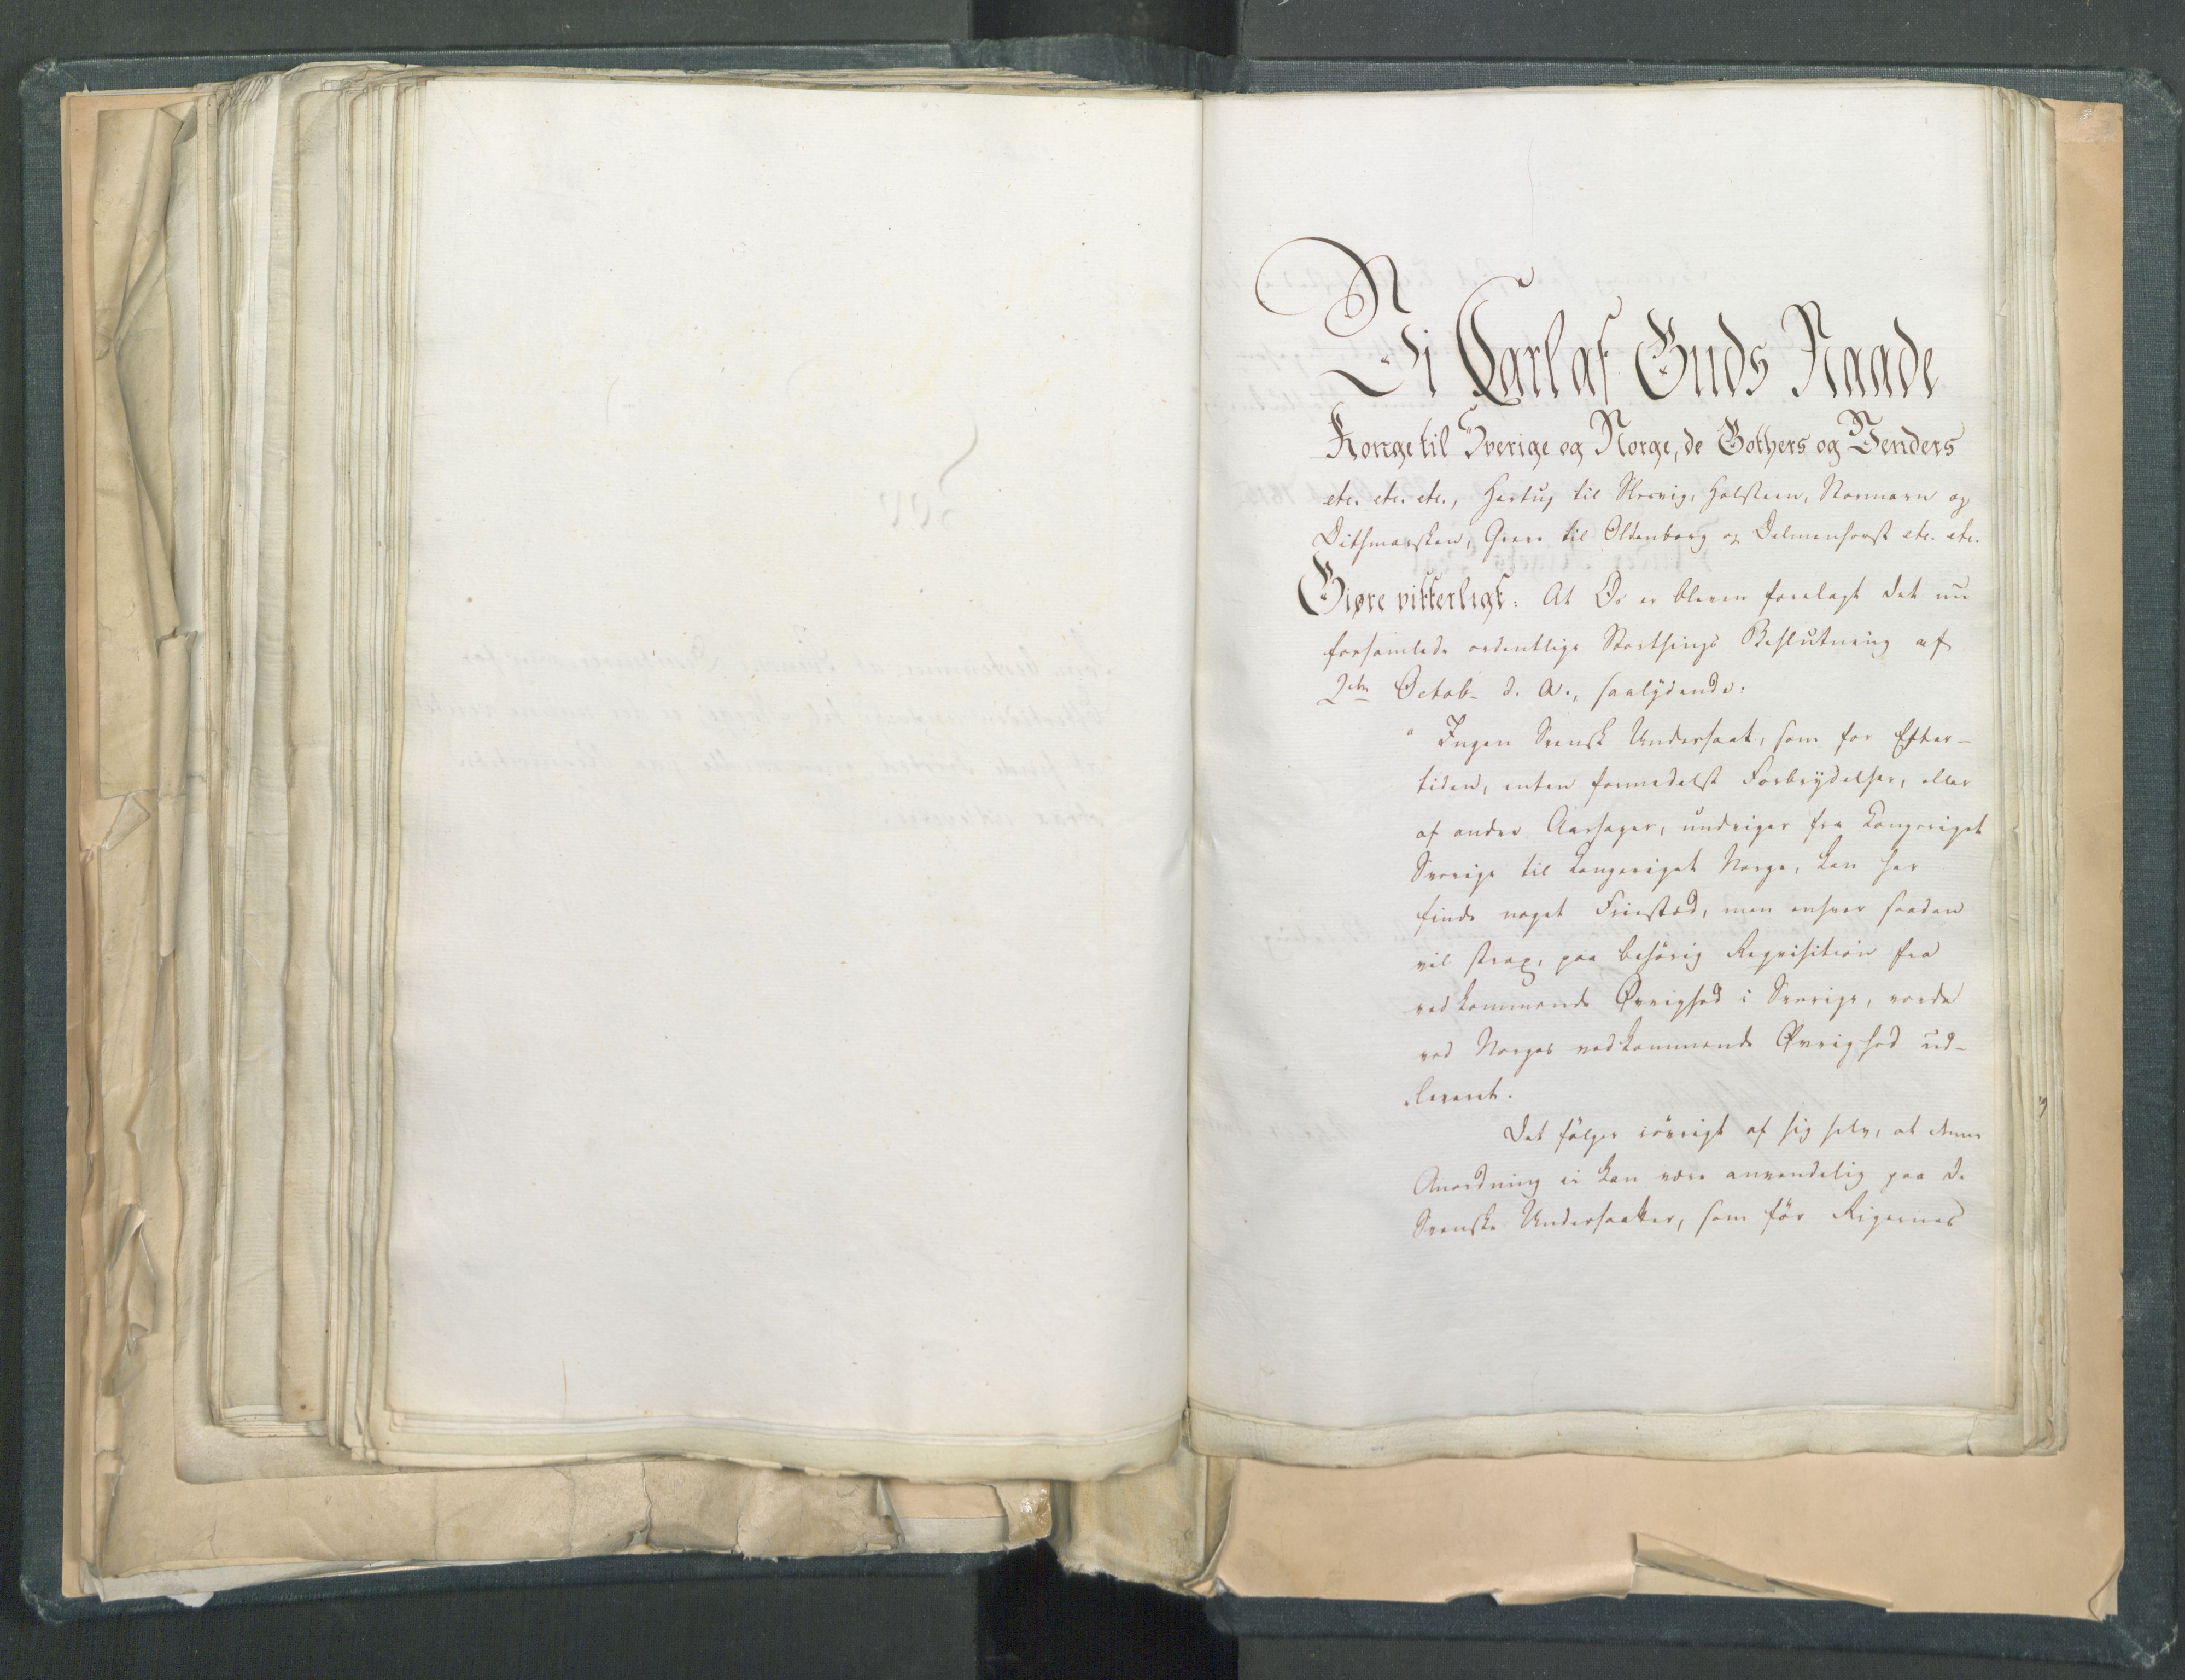 Vi Carl af Guds Naade
Konge til Sverige og Norge, de Gothers og Venders
etc. etc. etc., Hertug til Slesvig, Holsteen, Stormarn og
Dithmarsken, Greve til Oldenborg og Delmenhorst etc. etc.
Giøre vitterligt: At Os er bleven forelagt det nu
forsamlede ordentlige Storthings Beslutning af
2den Octobr d. A., saalydende:
" Ingen Svensk Undersaat, som for Efter-
tiden, enten formedelst Forbrydelser, eller
af andre Aarsager, undviger fra Kongeriget
Sverige til Kongeriget Norge, kan her
finde noget Friested, men enhver saadan
vil strax, paa behørig Requisition fra
vedkommende Øvrighed i Sverige, vorde
ved Norges vedkommende Øvrighed ud-
leveret.
Det følger iøvrigt af sig selv, at denne
Anordning ei kan være anvendelig paa de
Svenske Undersaatter, som før Rigernes